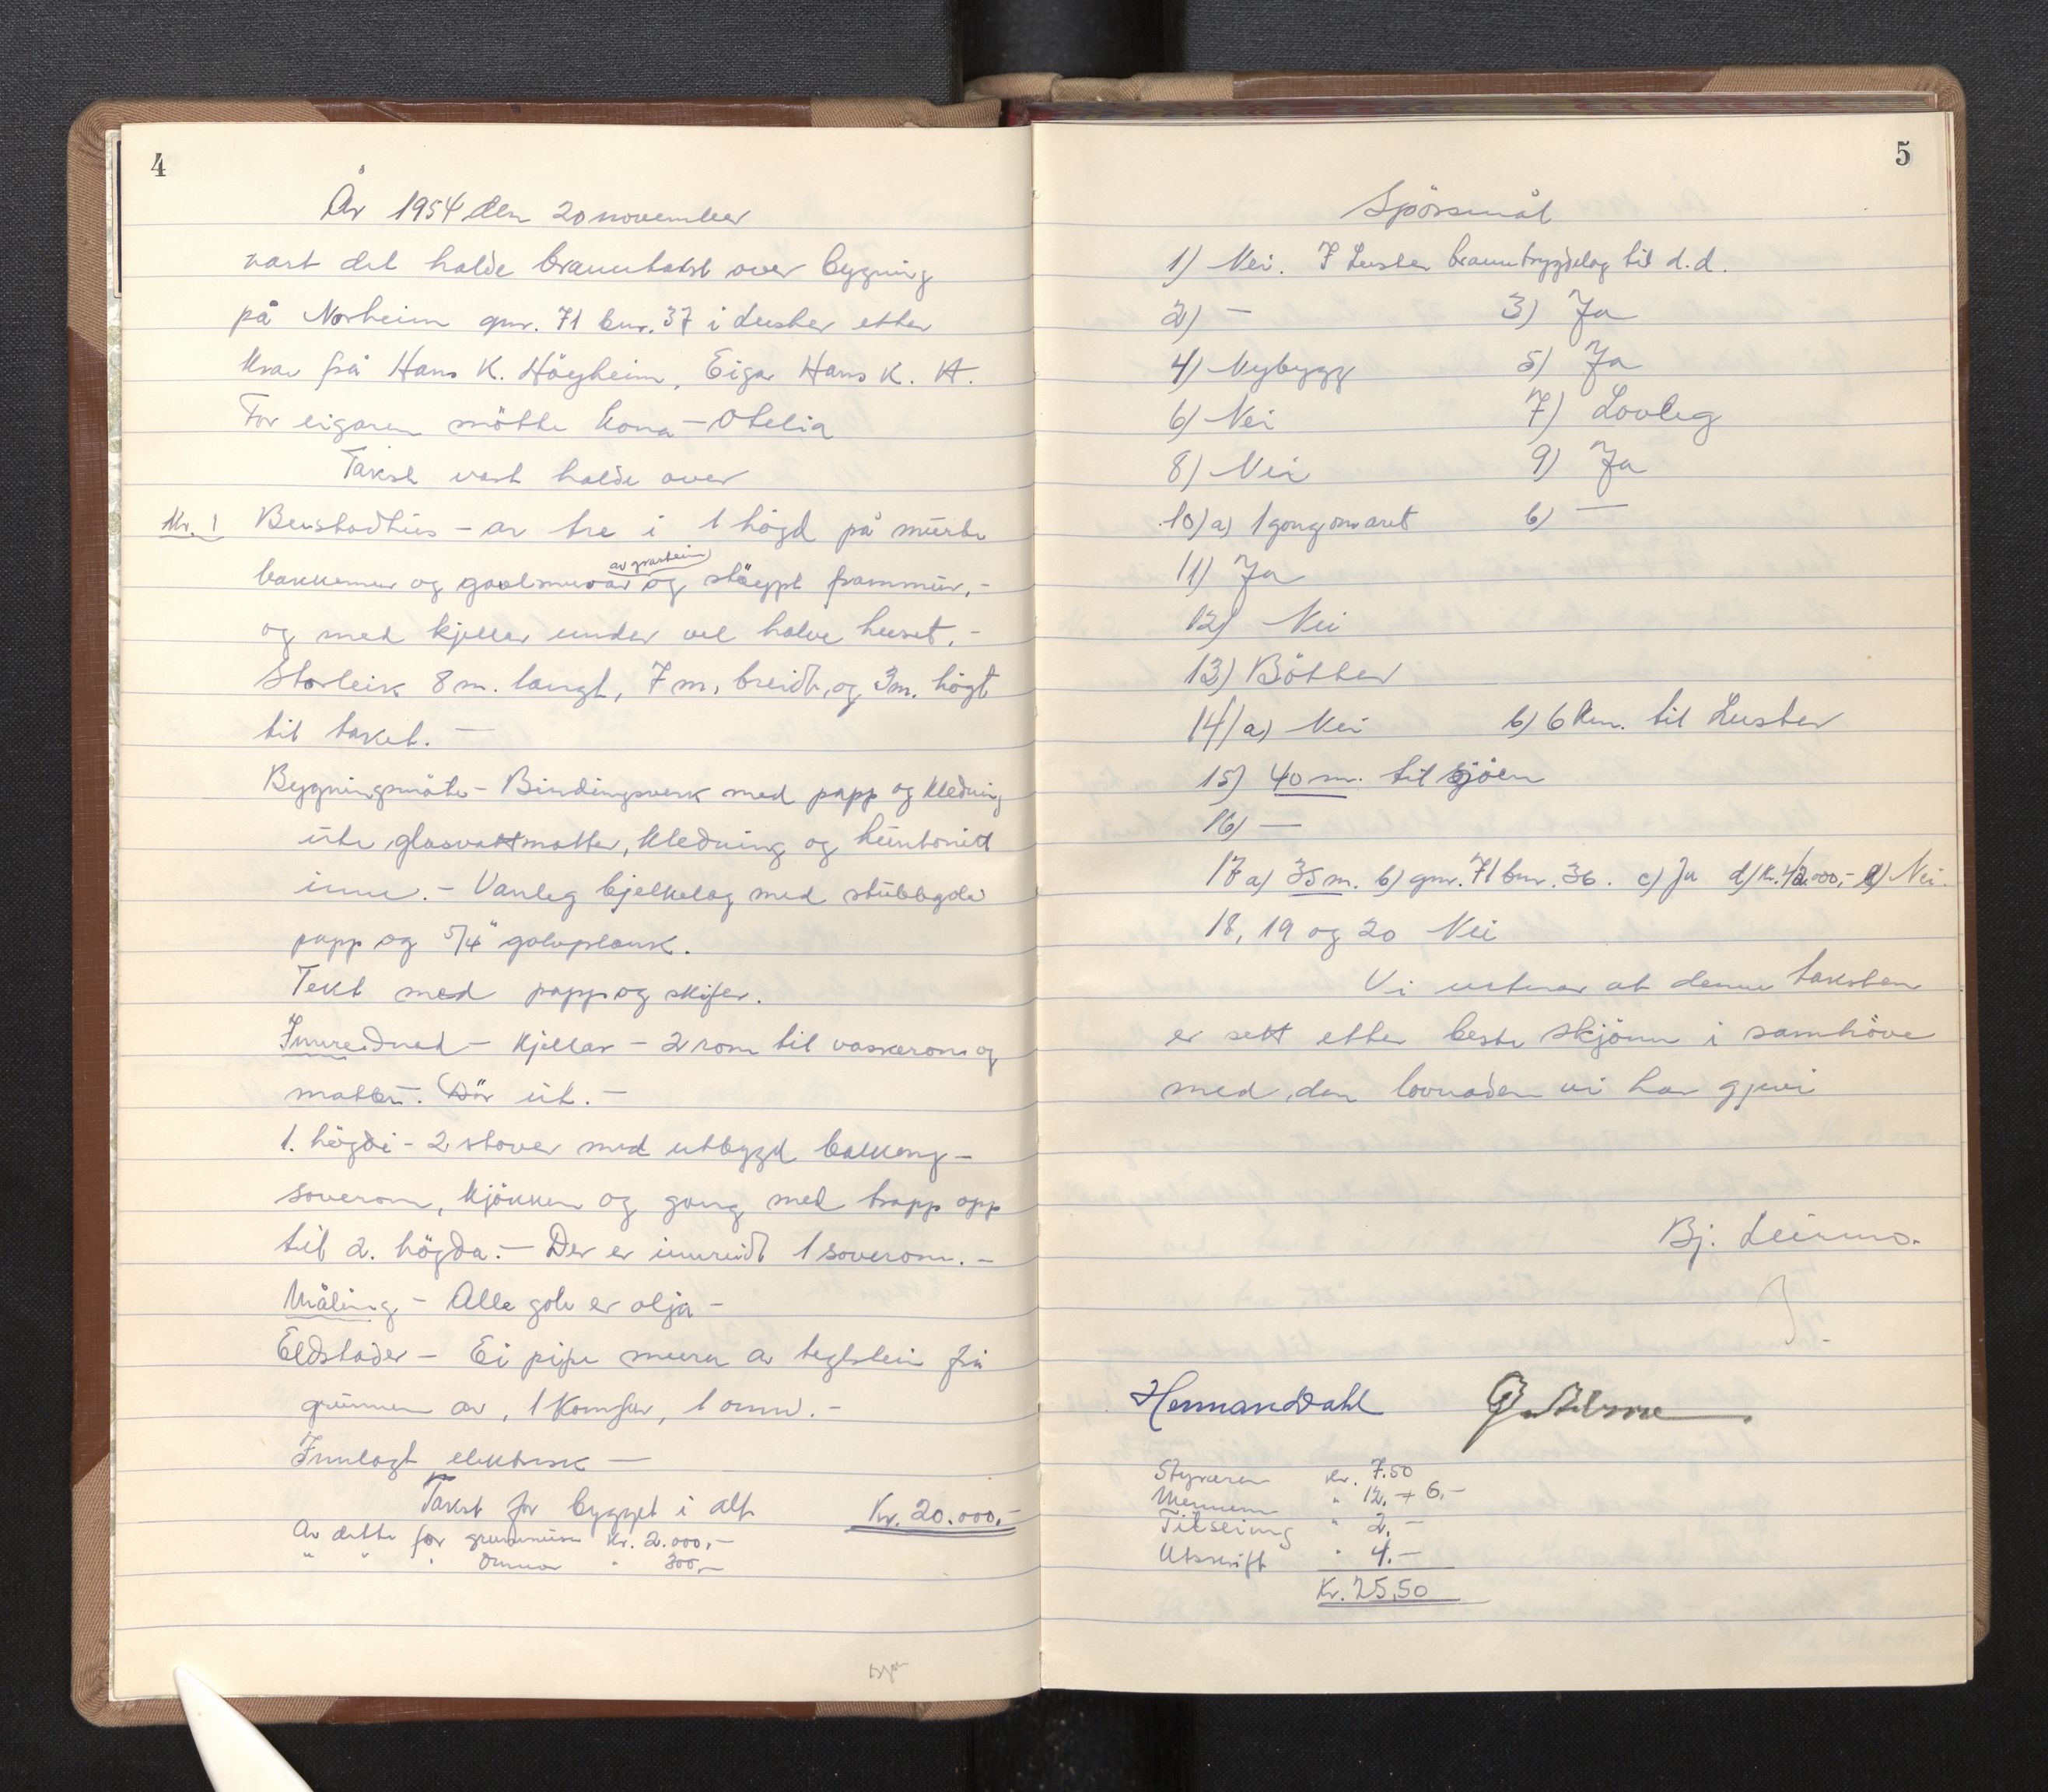 4
År 1954 den 20 november
vart det halde branntakst over bygning
på Norheim gnr. 71 bnr. 37 i Luster etter
krav frå Hans K. Høyheim, Eigar Hans K. H.
For eigaren møtte kona - Otelia
Takst vart halde over
Nr. 1 Bustadhus - av tre i 1 högd på murte
av gråstein
bakkemur og gavlmurar og støypt frammur, -
og med kjellar under vel halve huset. -
Storleik 8 m. langt, 7 m. breidt, og 3 m. högt
til taket. -
Bygningsmåte - Bindingsverk med papp og kledning
ute, glasvattmatter, kledning og huntonitt
inne. - Vanleg bjelkelag med stubbgolv
papp og 5/4" golvplank.
Tekt med papp og skifer.
Innreidnad - Kjellar - 2 rom til vaskerom og
matbu. Dör ut. -
1. högdi - 2 stover med utbygd balkong -
soverom, kjökken og gang med trapp opp
til 2. högda. - Der er innreidt 1 soverom. -
Måling - Alle golv er olja -
Eldstader - Ei pipe mura av teglstein frå
grunnen av, 1 komfur, 1 omn. -
Innlagt elektrisk -
Takst for bygget i alt Kr. 20.000,-
Av dette for grunnmur Kr. 2.000,-
" " " Omnar " 300,-
5
Spörsmål
1) Nei. I Luster branntrygdelag til d.d.
2) - 3) Ja
4) Nybygg 5) Ja
6) Nei 7) Lovleg
8) Nei 9) Ja
10) a) 1 gong om året b) -
11) Ja
12) Nei
13) Bötter
14) a) Nei b) 6 km. til Luster
15) 40 m. til sjöen
16) -
17 a) 35 m. b) gnr. 71 bnr. 36. c) Ja d) Kr. 42.000,- e) Nei.
18, 19 og 20 Nei
Vi vitnar at denne taksten
er sett etter beste skjönn i samhöve
med den lovnaden vi har gjevi
Bj. Leirmo.
Herman Dahl
Styraren Kr. 7.50
Mennene " 12.- + 6.-
Tilseing " 2.-
Utskrift " 4.-
Kr. 25,50